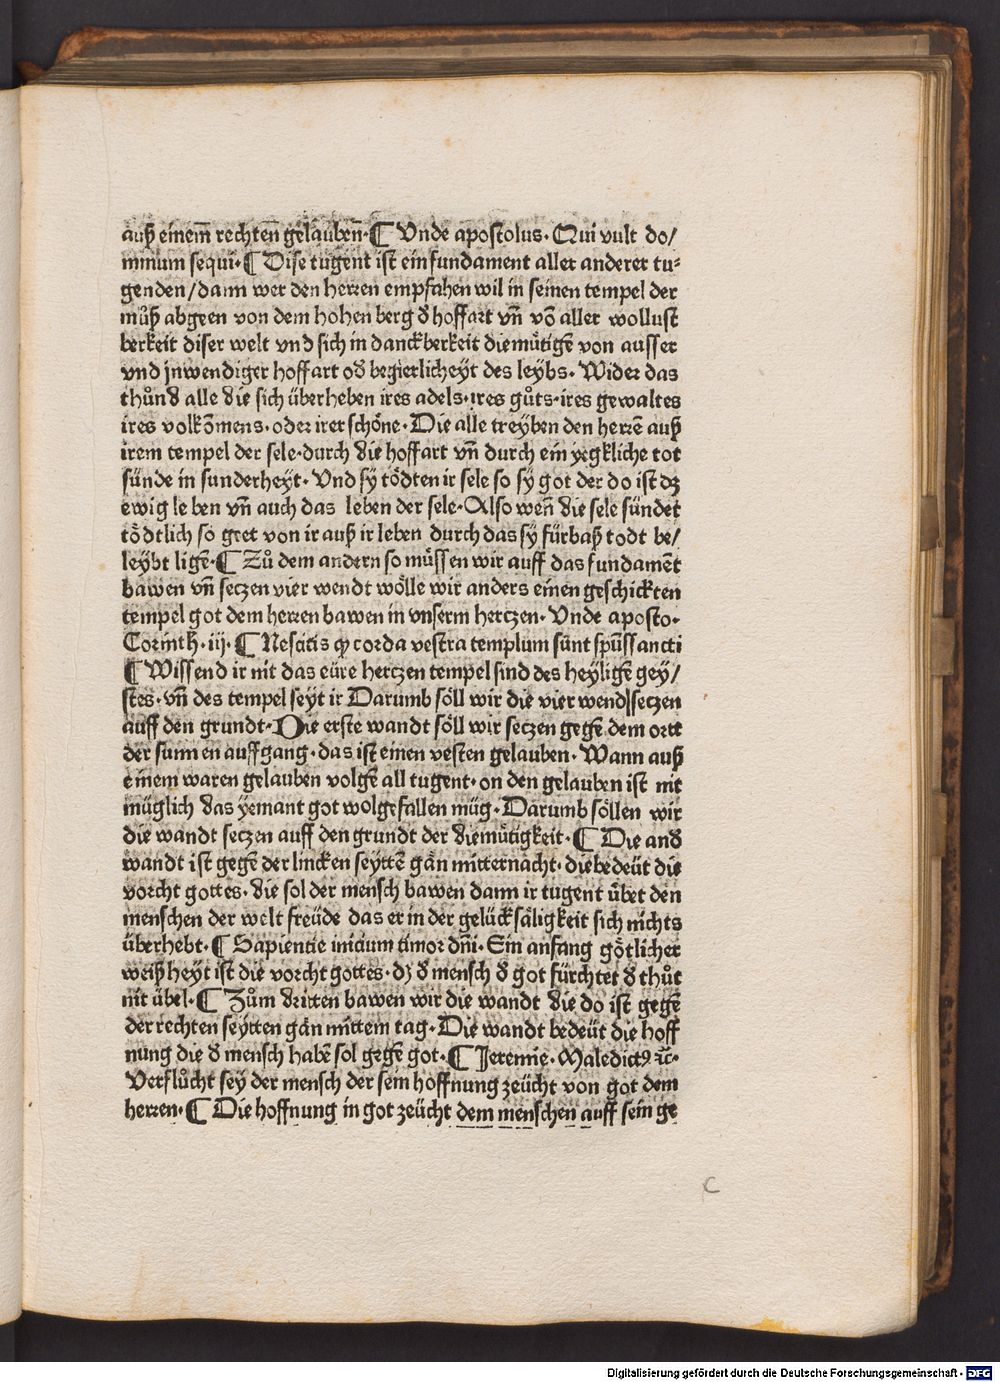 auß einem̄ rechten̄ gelauben̄· ¶ Vnde apostolus· Qui vult do/
minum sequi· ¶ Dise tugent ist ein fundament aller anderer tu⸗
genden/dann wer den herren empfahen wil in seinen tempel der
můß abgeen von dem hohen berg d̕ hoffart vn̄ vō aller wollust
berkeit diser welt vnd sich in danckberkeit diemuͤtigē von ausser
vnd jnwendiger hoffart od̕ begierlicheyt des leybs· Wider das
thůnd alle die sich überheben ires adels·ires gůts·ires gewaltes
ires volkōmens·oder irer schoͤne·Die alle treyben den herrē auß
irem tempel der sele·durch die hoffart vn̄ durch ein yegkliche tot
sünde in sunderheyt· Vnd sy toͤdten ir sele so sy got der do ist dz
ewig le ben vn̄ auch das leben der sele·Also wen̄ die sele sündet
toͤdtlich so gret von ir auß ir leben durch das sy fürbaß todt be/
leybt ligē· ¶ Zů dem andern so muͤssen wir auff das fundamēt
bawen vn̄ seczen vier wendt woͤlle wir anders einen geschickten
tempel got dem herren bawen in vnserm hertzen· Vnde aposto·
Corinth· iij· ¶ Nescitis ꝙ corda vestra templum sunt spūssancti
¶ Wissend ir nit das eüre hertzen tempel sind des heyligē gey/
stes· vn̄ des tempel seyt ir Darumb soͤll wir die vier wend seczen
auff den grundt·Die erste wandt soͤll wir seczen gegē dem ortt
der sunn en auffgang·das ist einen vesten gelauben· Wann auß
einem waren gelauben volgē all tugent·on den gelauben ist nit
müglich das yemant got wolgefallen müg· Darumb soͤllen wir
die wandt seczen auff den grundt der diemuͤtigkeit· ¶ Die and̕
wandt ist gegē der lincken seyttē gān mitternacht·die bedeüt die
vorcht gottes·die sol der mensch bawen dann ir tugent übet den
menschen der welt freüde das er in der gelücksaͤligkeit sich nichts
überhebt· ¶ Sapientie inicium timor dn̄i· Ein anfang goͤtlicher
weißheyt ist die vorcht gottes·dz d̕ mensch d̕ got fürchtet d̕ thůt
nit übel· ¶ Zům dritten bawen wir die wandt die do ist gegē
der rechten seytten gān mittem tag·Die wandt bedeüt die hoff
nung die d̕ mensch habē sol gegē got· ¶ Jeremie· Maledictꝯ ꝛc̄·
Verflůcht sey der mensch der sein hoffnung zeücht von got dem
herren· ¶ Die hoffnung in got zeücht dem menschen auff sein ge
c
Digitalisierung gefördert durch die Deutsche Forschungsgemeinschaft - DFG